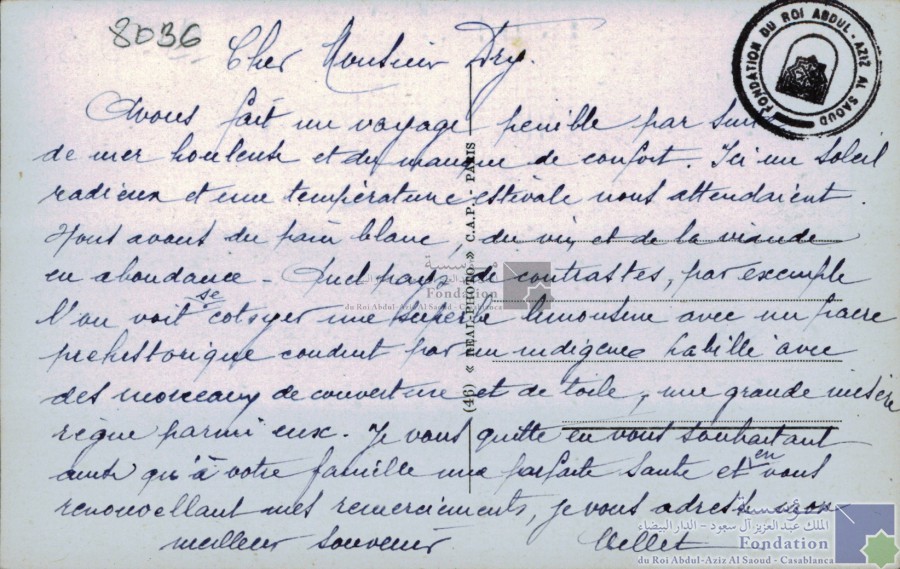 8036
Cher Monsieur Dry.
Avons fait un voyage penible par suite
de mer houleuse et du manque de confort. Ici un soleil
radieux et une température estivale nous attendaient.
Nous avons du pain blanc, du vin et de la viande
en abondance - Quel pays de contrastes, par exemple
l'on voit se cotoyer une superbe limousine avec un fiacre
prehistorique conduit par un indigene habillé avec
des morceaux de couverture et de toile, une grande misère
règne parmi eux. Je vous quitte en vous souhaitant
ainsi qu'à votre famille une parfaite santé et en vous
renouvellant mes remerciements, je vous adresse mon
meilleur souvenir
(46) « REAL-PHOTO » C.A.P. - PARIS
FONDATION DU ROI ABDUL-AZIZ AL SAOUD
Fondation
du Roi Abdul-Aziz Al Saoud - Casablanca
مؤسسة
الملك عبد العزيز آل سعود - الدار البيضاء
Fondation
du Roi Abdul-Aziz Al Saoud - Casablanca